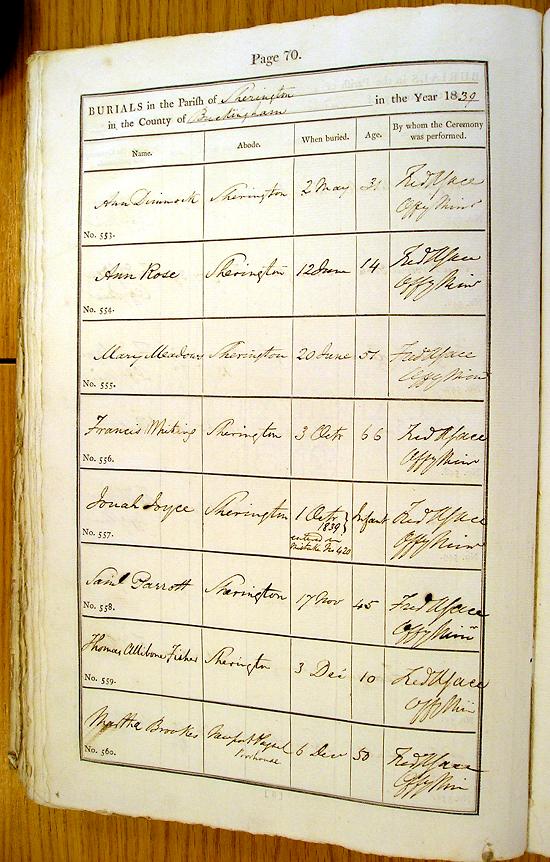 Page 70.
BURIALS in the Parish of Sherington in the Year 1839
in the County of Buckingham
Name. Abode. When buried. Age. By whom the Ceremony was performed.
Ann Dimmock Sherington 2 May 31 Fred Ulface
Offg Minr
No. 553.
Ann Rose Sherington 12 June 14
Offg Minr
No. 554.
Mary Meadows Sherington 20 June 51
Offg Minr
No. 555.
Francis Whiting Sherington 3 Octr 66
Offg Minr
No. 556.
Jonah Joyce Sherington 1 Octr 1839 Infant
entered by mistake No 420
Offg Minr
No. 557.
Saml Parrott Sherington 17 Nov 45
Offg Minr
No. 558.
Thomas Allibone Fisher Sherington 3 Dec 10
Offg Min
No. 559.
Martha Brookes Newport Pagnel Poorhouse 6 Decr 50
Offg Min
No. 560.